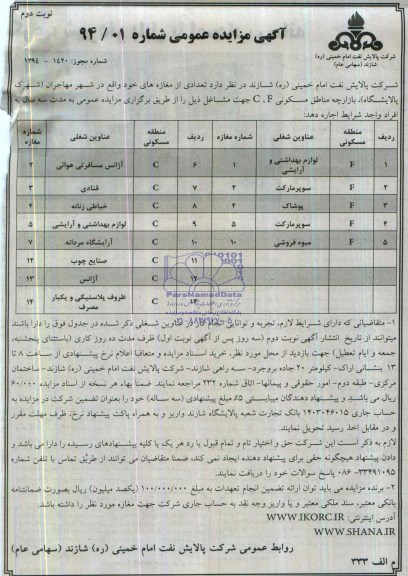 نوبت دوم
آگهی مزایده عمومی شماره ۹۴/۰۱
شرکت پالایش نفت امام خمینی (ره)
شازند (سهامی عام)
شماره مجوز: ۱۴۲۰ - ۱۳۹۴
شرکت پالایش نفت امام خمینی (ره) شازند در نظر دارد تعدادی از مغازه های خود واقع در شهر مهاجران (شهرک
پالایشگاه)، بازارچه مناطق مسکونی C , F جهت مشاغل ذیل را از طریق برگزاری مزایده عمومی به مدت سه سال به
افراد واجد شرایط اجاره دهد:
ردیف منطقه مسکونی عناوین شغلی شماره مغازه ردیف منطقه مسکونی عناوین شغلی شماره مغازه
۱ F لوازم بهداشتی و آرایشی ۱ ۶ C آژانس مسافرتی هوائی ۲
۲ F سوپرمارکت ۲ ۷ C قنادی ۳
۳ F پوشاک ۴ ۸ C خیاطی زنانه ۴
۴ F سوپرمارکت ۵ ۹ C لوازم بهداشتی و آرایشی ۵
۵ F میوه فروشی ۱۰ ۱۰ C آرایشگاه مردانه ۷
۱۱ C صنایع چوب ۱۲
۱۲ C آژانس ۱۳
۱۳ C ظروف پلاستیکی و یکبار مصرف ۱۴
ParsNamadData
۱- متقاضیانی که دارای شرایط لازم، تجربه و توانایی انجام کار در عناوین شغلی ذکر شده در جدول فوق را دارا باشند
میتوانند از تاریخ انتشار آگهی نوبت دوم (سه روز پس از آگهی نوبت اول) ظرف مدت ده روز کاری (باستثنای پنجشنبه،
جمعه و ایام تعطیل) جهت بازدید از محل مورد نظر، خرید اسناد مزایده و متعاقبا اعلام نرخ پیشنهادی از ساعت ۸ تا
۱۳ بنشانی اراک- کیلومتر ۲۰ جاده بروجرد- سه راهی شازند- شرکت پالایش نفت امام خمینی (ره) شازند- ساختمان
مرکزی- طبقه دوم- امور حقوقی و پیمانها- اتاق شماره ۲۳۲ مراجعه نمایند. ضمناً بهاء هر نسخه از اسناد مزایده ۶۰/۰۰۰
ریال می باشند و پیشنهاد دهندگان میبایستی ۵٪ مبلغ پیشنهادی (سه ساله) خود را بعنوان تضمین شرکت در مزایده به
حساب جاری ۱۴۰۳۰۴۶۰۱۵ بانک تجارت شعبه پالایشگاه شازند واریز و به همراه پاکت پیشنهاد نرخ، ظرف مهلت مقرر
و در مقابل اخذ رسید تحویل نمایند.
لازم به ذکر است این شرکت حق و اختیار تام و تمام قبول یا رد هر یک یا کلیه پیشنهادهای رسیده را دارا می باشد و
دادن پیشنهاد هیچگونه حقی برای پیشنهاد دهنده ایجاد نمی کند، ضمنا متقاضیان می توانند از طریق تماس با تلفن شماره
۳۳۴۹۱۰۹۵- ۰۸۶ پاسخ سوالات خود را دریافت نمایند.
۲- برنده مزایده می باید توان ارائه تضمین انجام تعهدات به مبلغ ۱۰۰/۰۰۰/۰۰۰ (یکصد میلیون) ریال بصورت ضمانتنامه
بانکی معتبر، سند ملکی معتبر و یا واریز وجه نقد به حساب جاری شرکت جهت مغازه مورد نظر را داشته باشد.
آدرس اینترنتی: WWW.IKORC.IR
WWW.SHANA.IR
روابط عمومی شرکت پالایش نفت امام خمینی (ره) شازند (سهامی عام)
م الف ۳۳۳